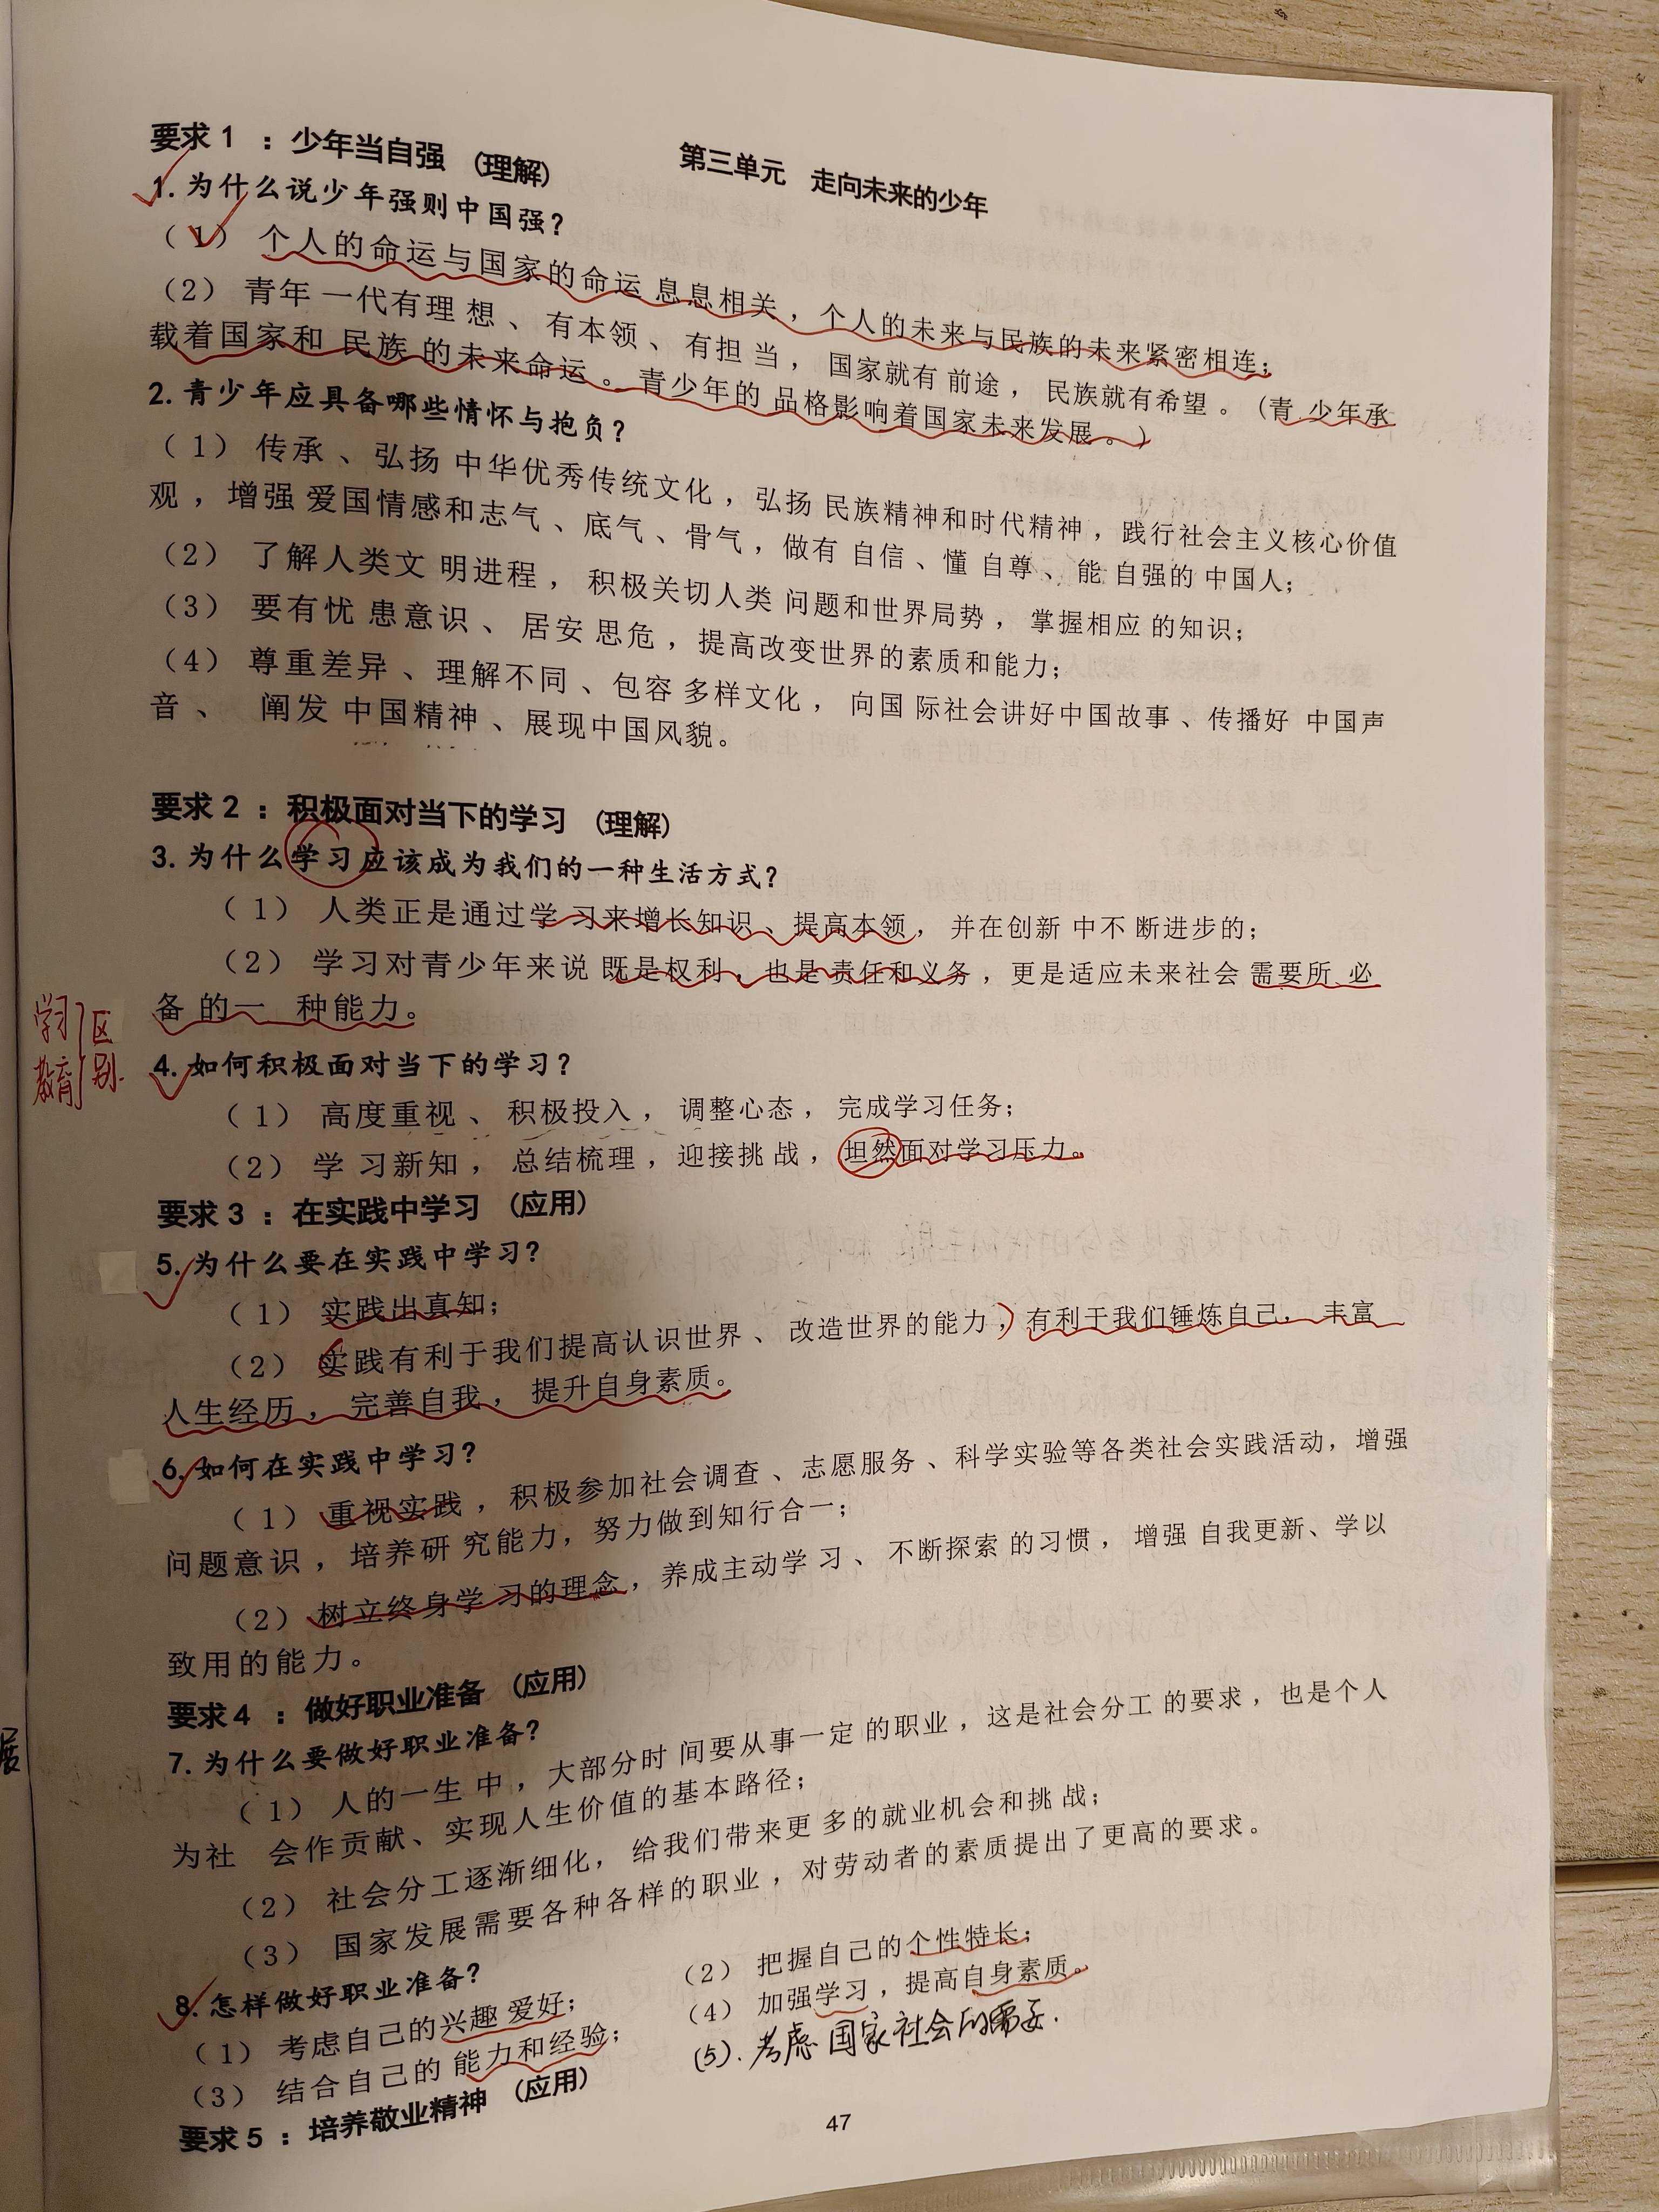 第三单元 走向未来的少年
要求 1 ：少年当自强 （理解）
1. 为什么说少年强则中国强？
（1） 个人的命运与国家的命运 息息相关，个人的未来与民族的未来紧密相连；
（2） 青年 一代有理 想、有本领、有担 当，国家就有 前途，民族就有希望。（青 少年承
载着国家和 民族 的未来命运。青少年的 品格影响着国家未来发展。）
2. 青少年应具备哪些情怀与抱负？
（1） 传承、弘扬 中华优秀传统文化，弘扬 民族精神和时代精神，践行社会主义核心价值
观，增强 爱国情感和志气、底气、骨气，做有 自信、懂 自尊、能 自强的 中国人；
（2） 了解人类文 明进程，积极关切人类 问题和世界局势，掌握相应 的知识；
（3） 要有忧 患意识、居安 思危，提高改变世界的素质和能力；
（4） 尊重差异、理解不同、包容 多样文化，向国 际社会讲好中国故事、传播好 中国声
音、 阐发 中国精神、展现中国风貌。
要求 2 ：积极面对当下的学习 （理解）
3. 为什么学习应该成为我们的一种生活方式？
（1） 人类正是通过学 习来增长知识、提高本领，并在创新 中不 断进步的；
（2） 学习对青少年来说 既是权利，也是 责任和义务，更是适应未来社会 需要所 必
备 的一 种能力。
学习 区
教育 别.
4. 如何积极面对当下的学习？
（1） 高度重视、积极投入，调整心态，完成学习任务；
（2） 学 习新知，总结梳理，迎接挑 战，坦然面对学习压力。
要求 3 ：在实践中学习 （应用）
5. 为什么要在实践中学习？
（1） 实践出真知；
（2） 实践有利于我们提高认识世界、改造世界的能力，有利于我们锤炼自己，丰富
人生经历，完善自我，提升自身素质。
6. 如何在实践中学习？
（1） 重视实践，积极参加社会调查、志愿服务、科学实验等各类社会实践活动，增强
问题意识，培养研 究能力，努力做到知行合一；
（2） 树立终身学 习的理念，养成主动学 习、不断探索 的习惯，增强 自我更新、学以
致用的能力。
要求 4 ：做好职业准备 （应用）
7. 为什么要做好职业准备？
（1） 人的一生 中，大部分时 间要从事一定 的职业，这是社会分工 的要求，也是个人
为社 会作贡献、实现人生价值的基本路径；
（2） 社会分工逐渐细化，给我们带来更 多的就业机会和挑 战；
（3） 国家发展需要各种各样的职业，对劳动者的素质提出了更高的要求。
8. 怎样做好职业准备？
（1） 考虑自己的兴趣 爱好； （2） 把握自己的个性特长；
（3） 结合自己的 能力和经验； （4） 加强学习，提高自身素质。
(5). 考虑 国家社会的需要.
要求 5 ：培养敬业精神 （应用）
47
展